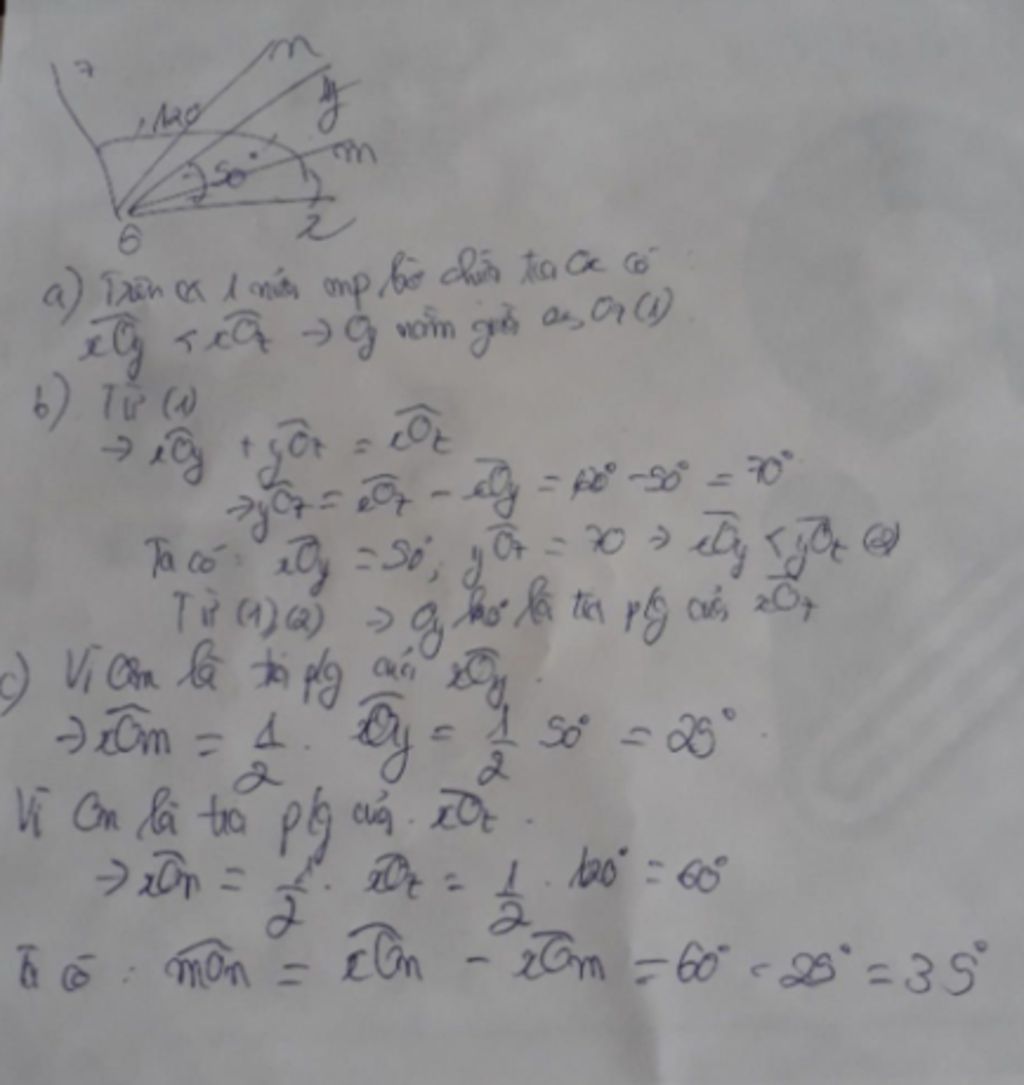 z
n
120
y
50°
m
O
x
a) Trên cx 1 nửa mp bờ chứa tia Ox có
xOy < xOz → Oy nằm giữa Ox, Oz (1)
b) Từ (1)
→ xOy + yOz = xOz
→ yOz = xOz - xOy = 120° - 50° = 70°
Ta có: xOy = 50°; yOz = 70 → xOy < yOz (2)
Từ (1) (2) → Oy ko là tia p/g của xOz
c) Vì Om là tia p/g của xOy.
→ xOm = 1/2 . xOy = 1/2 50° = 25°.
Vì On là tia p/g của xOz.
→ xOn = 1/2 . xOz = 1/2 . 120° = 60°
Ta có: mOn = xOn - xOm = 60° - 25° = 35°